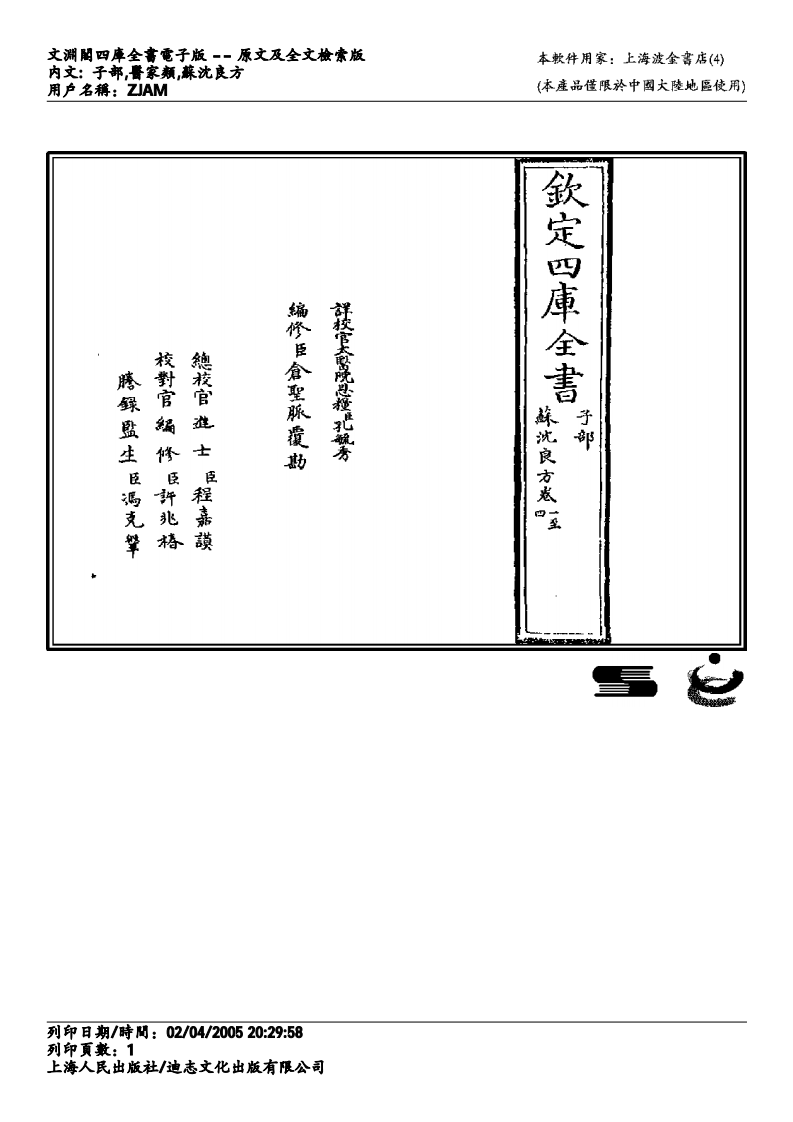 文淵閣四庫全書電子版 -- 原文及全文檢索版
內文：子部,醫家類,蘇沈良方
用户名稱：ZJAM
本軟件用家：上海波金書店(4)
(本產品僅限於中國大陸地區使用)
欽定四庫全書
子部
蘇沈良方卷一至四
詳校官太醫院恩糧臣孔毓秀
編修臣倉聖脈覆勘
總校官進士臣程嘉謨
校對官編修臣許兆椿
謄錄監生臣馮克鞏
列印日期/時間：02/04/2005 20:29:58
列印頁數：1
上海人民出版社/迪志文化出版有限公司